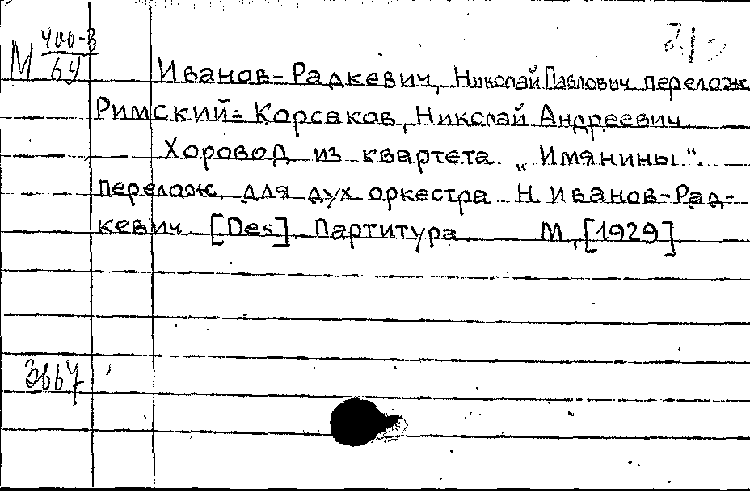 М 400-В
64
Иванов-Радкевич, Николай Павлович перелож
Римский-Корсаков, Николай Андреевич
Хоровод из квартета „Имянины".
перелож. для дух оркестра Н. Иванов-Рад-
кевич. [Des]. Партитура М., [1929]
3667